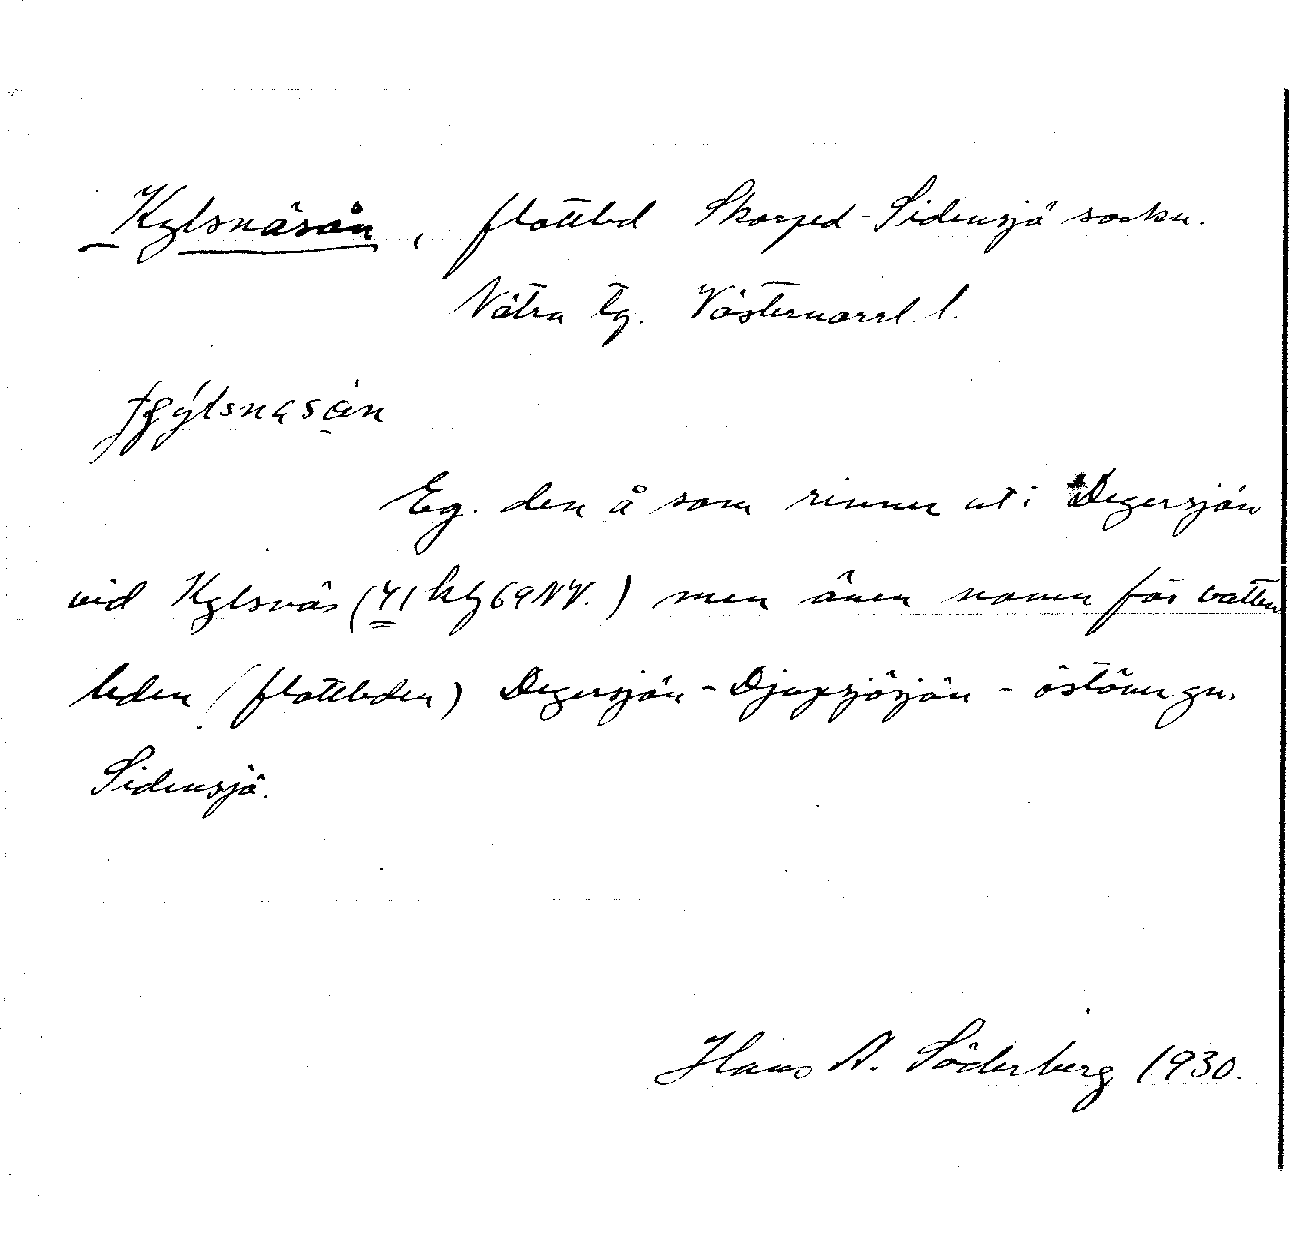 Kylsnäsån, flottled Skorped-Sidensjö sockn.
Nätra tg. Västernorrl. l.
Eg. den å som rinner ut i Degersjön
vid Kylsnäs (71 69NV.) men även namn för vatten
leden (flottleden) Degersjön - Djupsjösjön - östöver gm.
Sidensjö.
Hans A. Söderberg 1930.